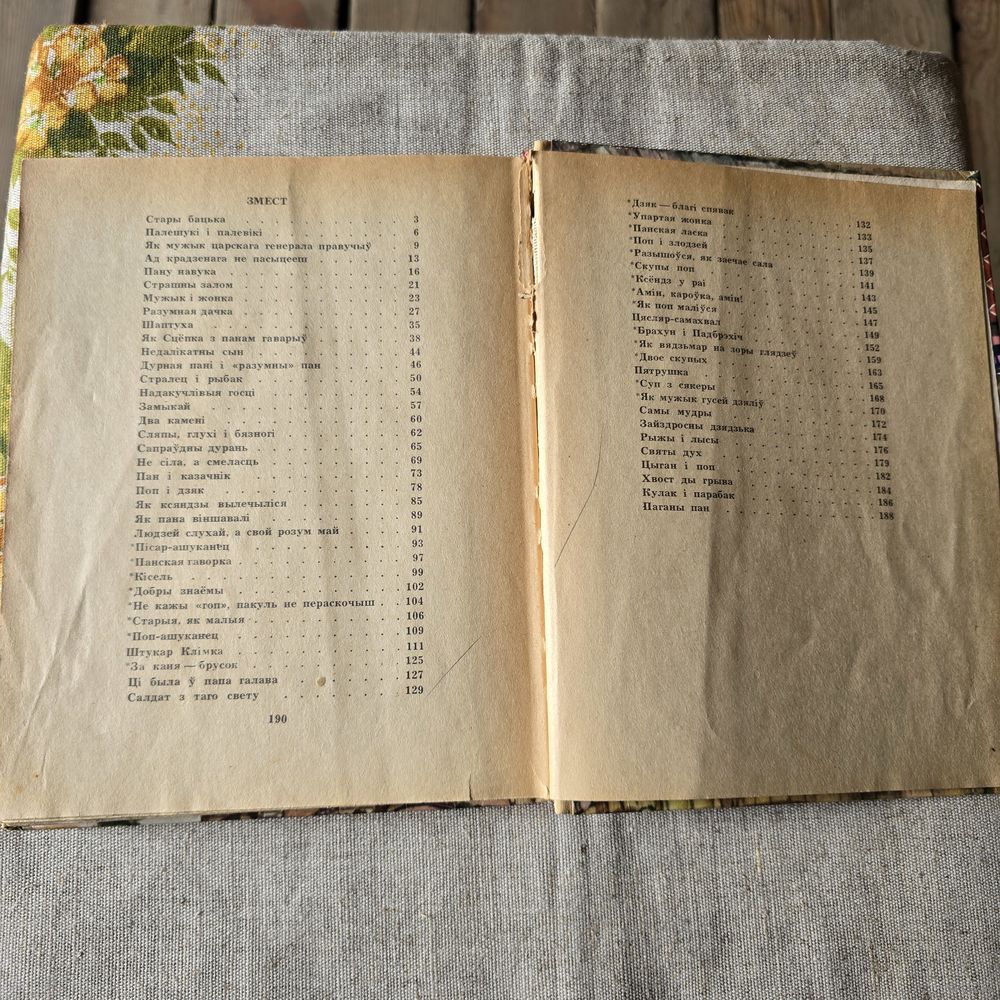 ЗМЕСТ
Стары бацька 3
Палешукі і палевікі 6
Як мужык царскага генерала правучыў 9
Ад крадзенага не пасыцееш 13
Пану навука 16
Страшны залом 21
Мужык і жонка 23
Разумная дачка 27
Шаптуха 35
Як Сцёпка з панам гаварыў 38
Недалікатны сын 44
Дурная пані і «разумны» пан 46
Стралец і рыбак 50
Надакучлівыя госці 54
Замыкай 57
Два камені 60
Сляпы, глухі і бязногі 62
Сапраўдны дурань 65
Не сіла, а смеласць 69
Пан і казачнік 73
Поп і дзяк 78
Як ксяндзы вылечыліся 85
Як пана віншавалі 89
Людзей слухай, а свой розум май 91
*Пісар-ашуканец 93
*Панская гаворка 97
*Кісель 99
*Добры знаёмы 102
*Не кажы «гоп», пакуль не пераскочыш 104
*Старыя, як малыя 106
*Поп-ашуканец 109
Штукар Клімка 111
*За каня — брусок 125
Ці была ў папа галава 127
Салдат з таго свету 129
190
*Дзяк — благі спявак 132
*Упартая жонка 133
*Панская ласка 135
*Поп і злодзей 137
*Разышоўся, як заечае сала 139
*Скупы поп 141
*Ксёндз у раі 143
*Амін, кароўка, амін! 145
*Як поп маліўся 147
Цясляр-самахвал 149
*Брахун і Падбрэхіч 152
*Як вядзьмар на зоры глядзеў 159
*Двое скупых 163
Пятрушка 165
*Суп з сякеры 168
*Як мужык гусей дзяліў 170
Самы мудры 172
Зайздросны дзядзька 174
Рыжы і лысы 176
Святы дух 179
Цыган і поп 182
Хвост ды грыва 184
Кулак і парабак 186
Паганы пан 188